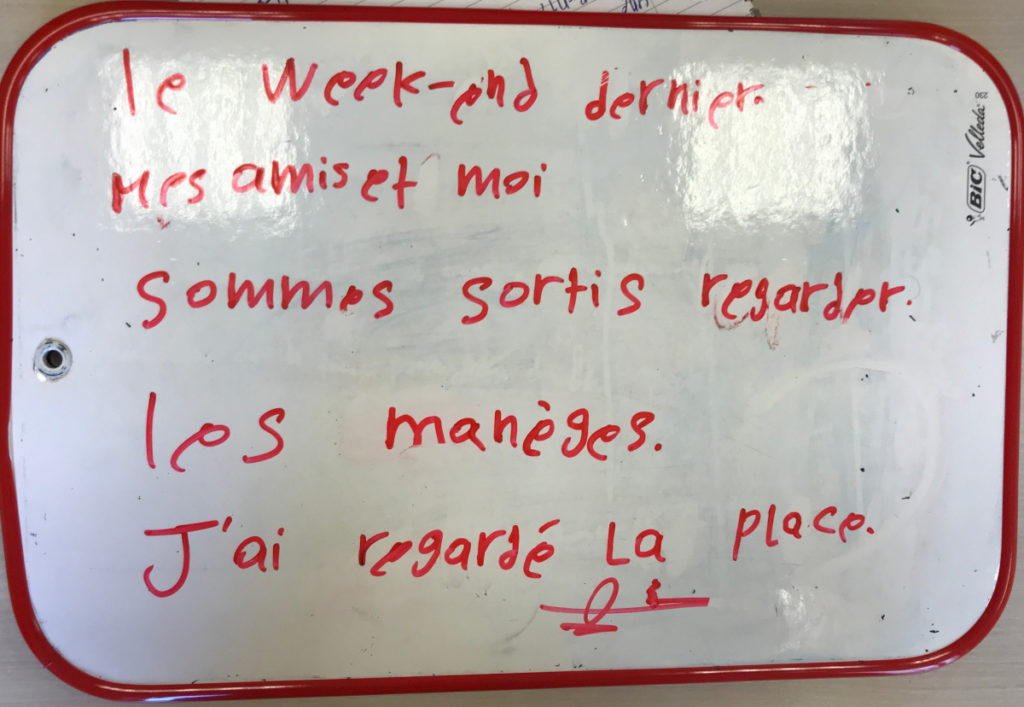 le week-end dernier.
Mes amis et moi
sommes sortis regarder.
les manèges.
J'ai regardé La place.
BIC Velleda